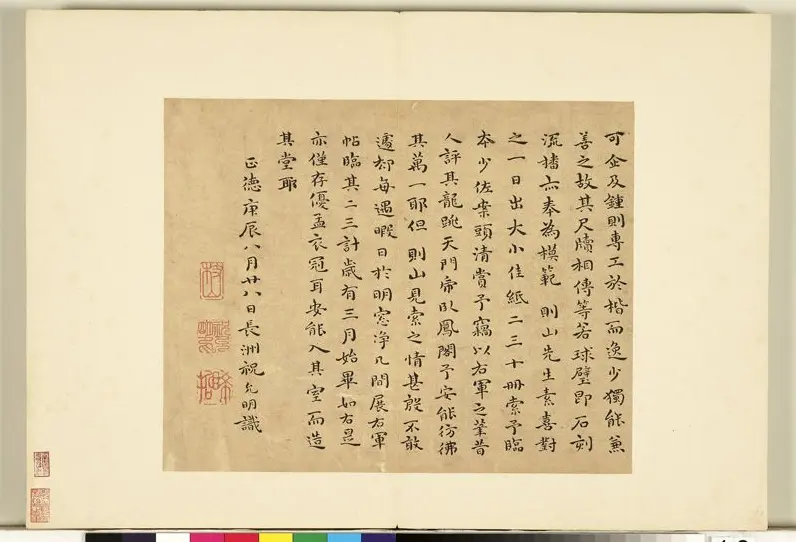 可企及鍾則專工於楷而逸少獨能兼
善之故其尺牘相傳等若球璧即石刻
流播亦奉為模範 則山先生素喜對
之一日出大小佳紙二三十冊索予臨
本少佐案頭清賞予竊以右軍之筆昔
人評其龍跳天門虎臥鳳閣予安能彷彿
其萬一耶但 則山見索之情甚殷不敢
遽却每遇暇日於明窓净几間展右軍
帖臨其二三計歲有三月始畢如右是
亦僅存優孟衣冠耳安能入其室而造
其堂耶
正德庚辰八月廿八日長洲祝允明識
枝山
希哲